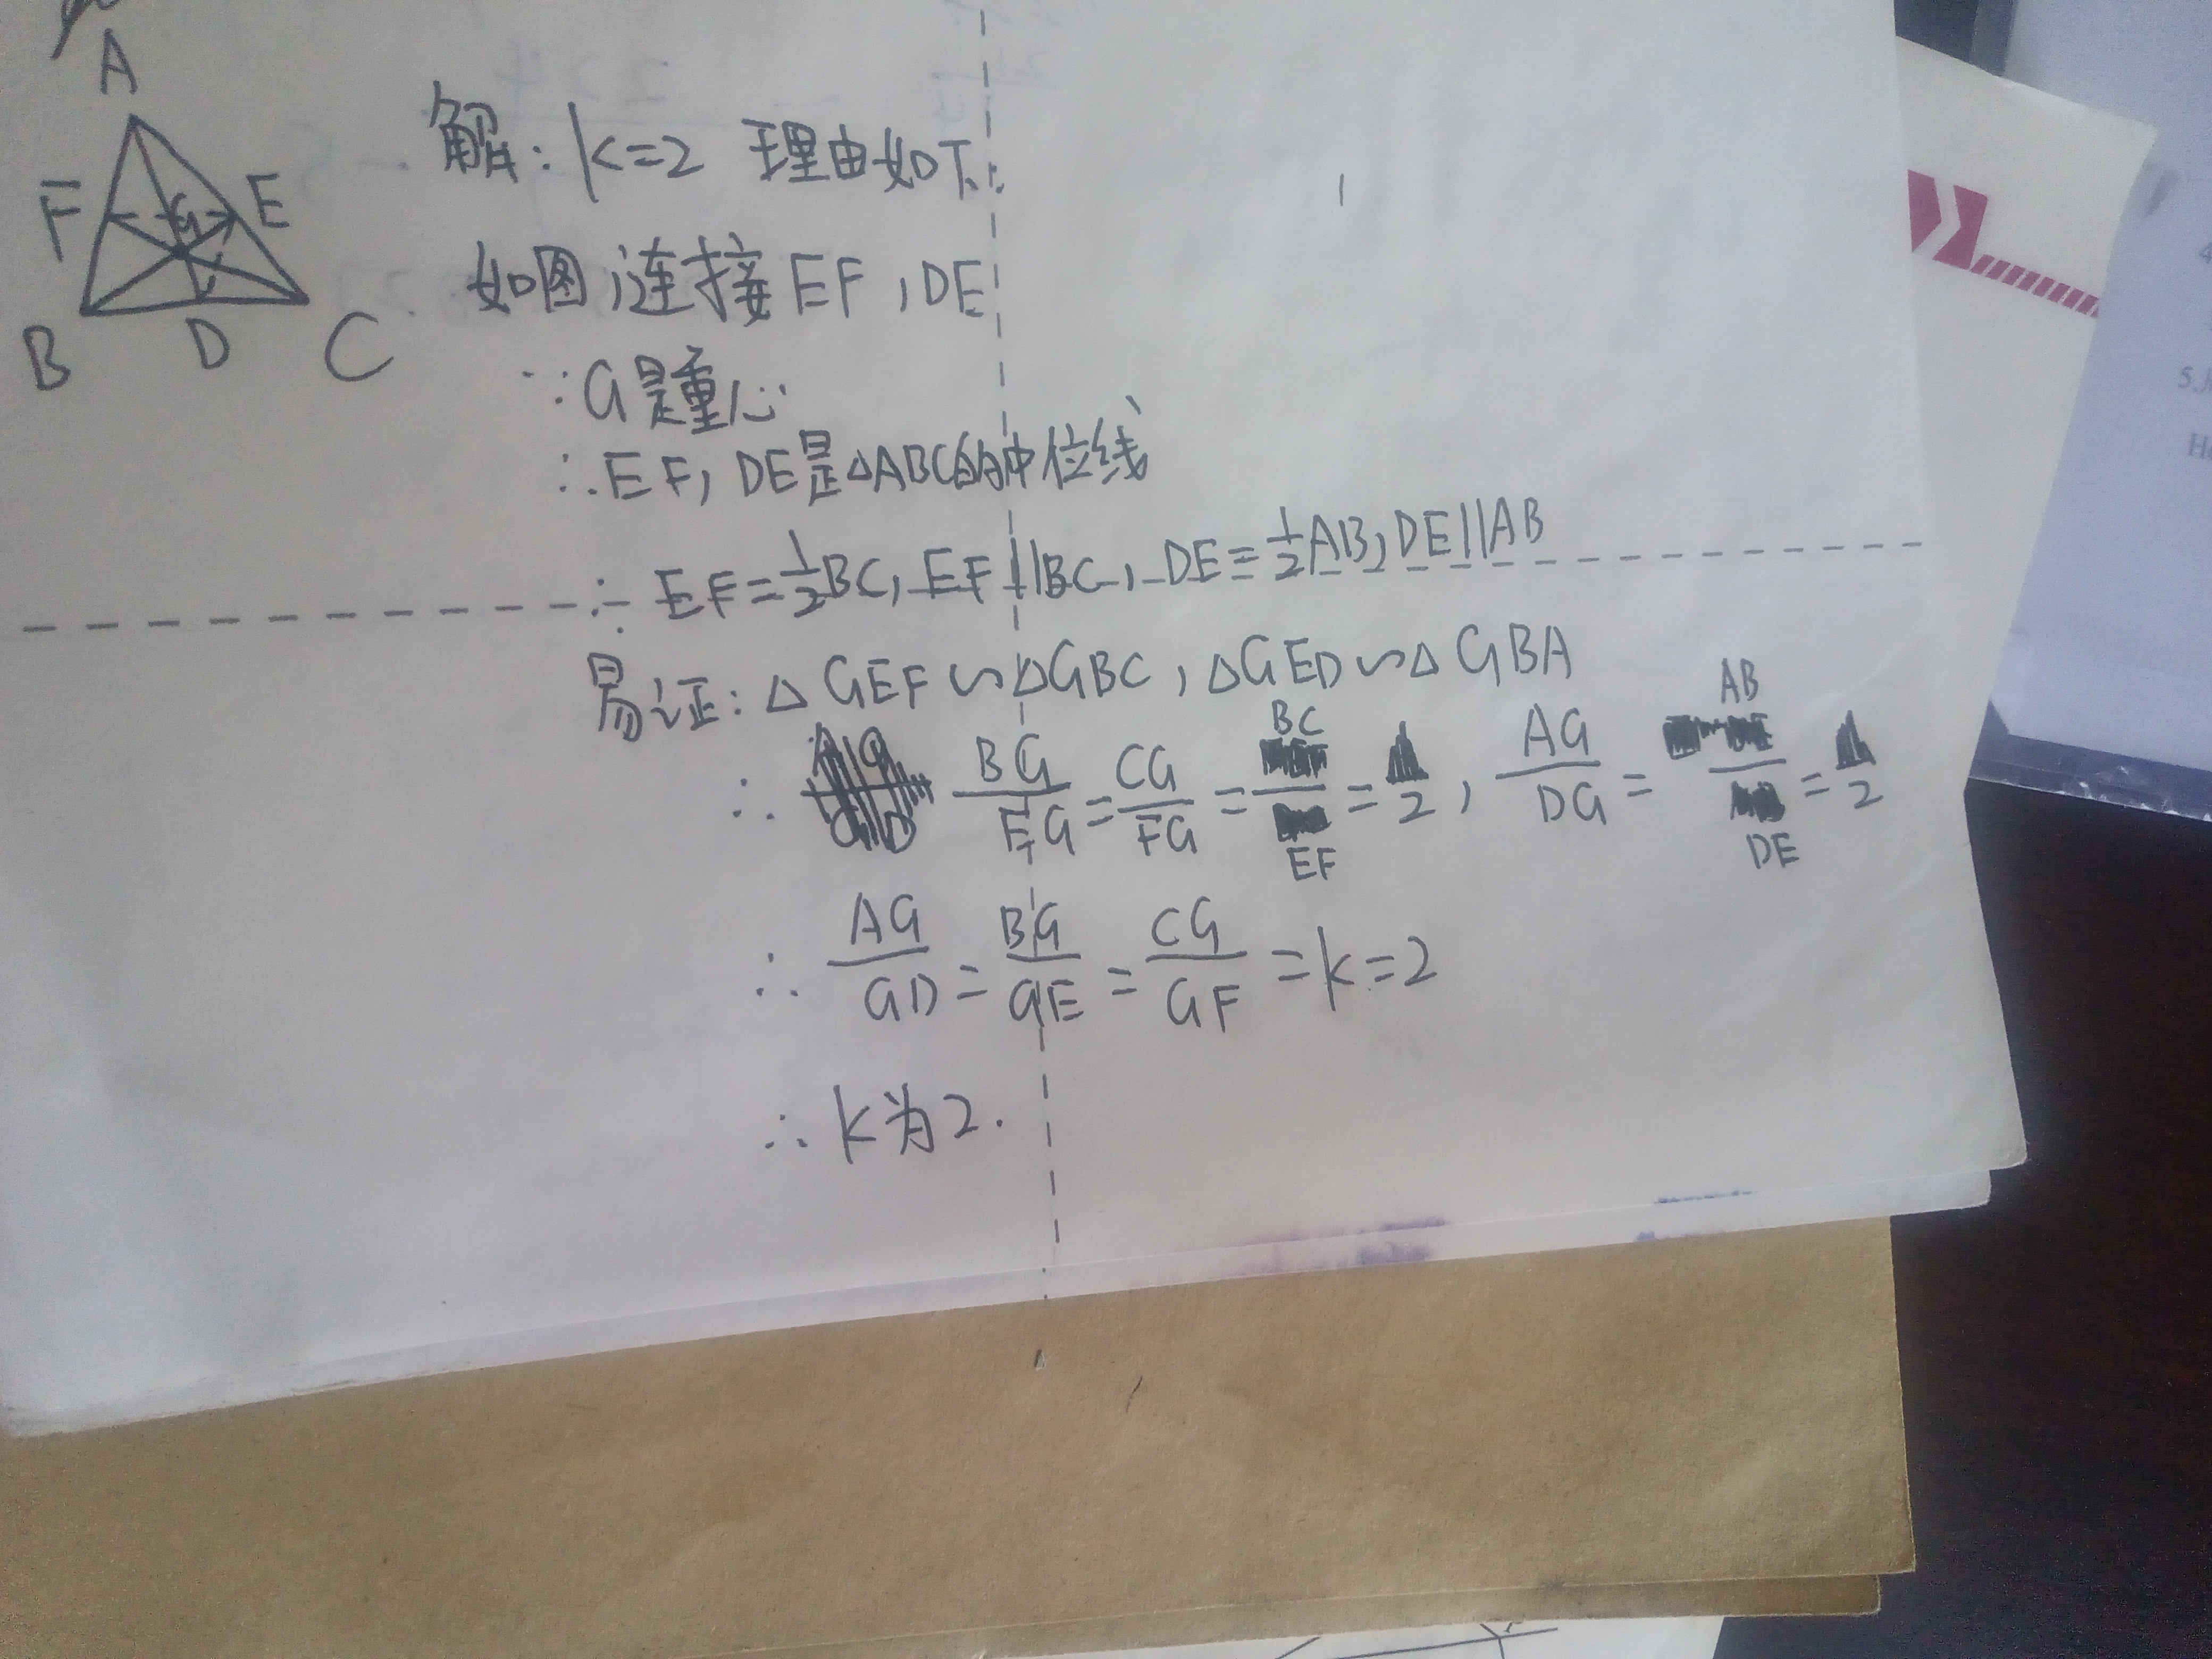 A
F
G
E
B
D
C
解:k=2 理由如下:
如图,连接EF,DE
∵G是重心
∴EF,DE是△ABC的中位线
∴EF=1/2BC,EF∥BC,DE=1/2AB,DE∥AB
易证:△GEF∽△GBC,△GED∽△GBA
∴BG/EG=CG/FG=BC/EF=2,AG/DG=AB/DE=2
∴AG/GD=BG/GE=CG/GF=k=2
∴k为2.
4
5.